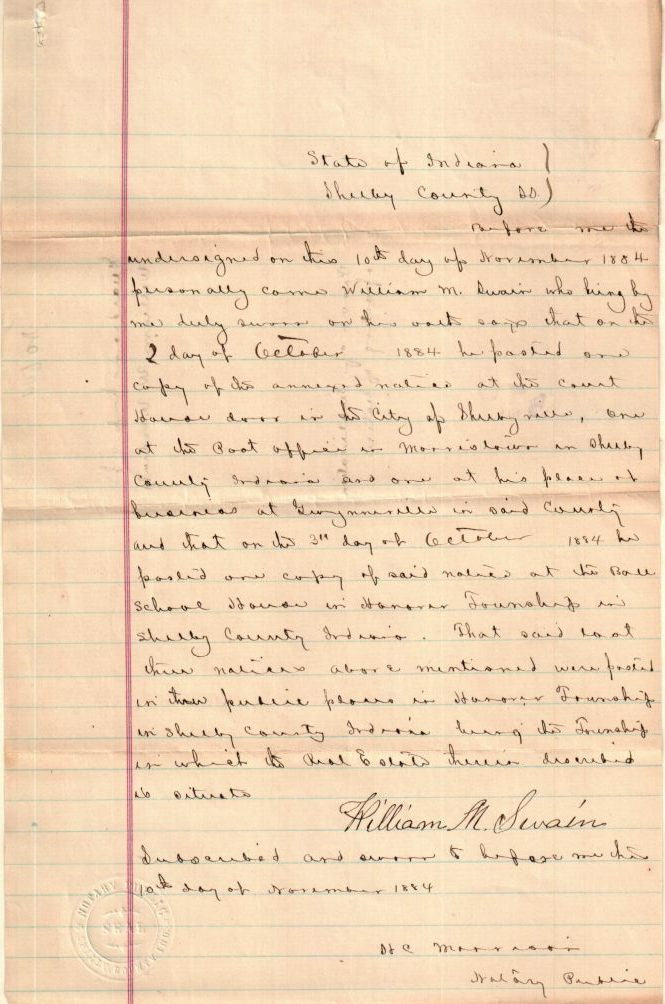 State of Indiana }
Shelby County SS }
Before me the
undersigned on this 10th day of November 1884
personally came William M. Swain who being by
me duly sworn on his oath says that on the
2 day of October 1884 he posted one
copy of the annexed notice at the Court
House door in the City of Shelbyville, one
at the Post office in Morristown in Shelby
County Indiana and one at his place of
business at Gwynneville in said County
and that on the 3rd day of October 1884 he
posted one copy of said notice at the Ball
School House in Hanover Township in
Shelby County Indiana. That said last
three notices above mentioned were posted
in three public places in Hanover Township
in Shelby County Indiana being the Township
in which the Real Estate therein described
is situate
William M. Swain
Subscribed and sworn to before me this
10th day of November 1884
H C Morrison
Notary Public
NOTARY PUBLIC
SEAL